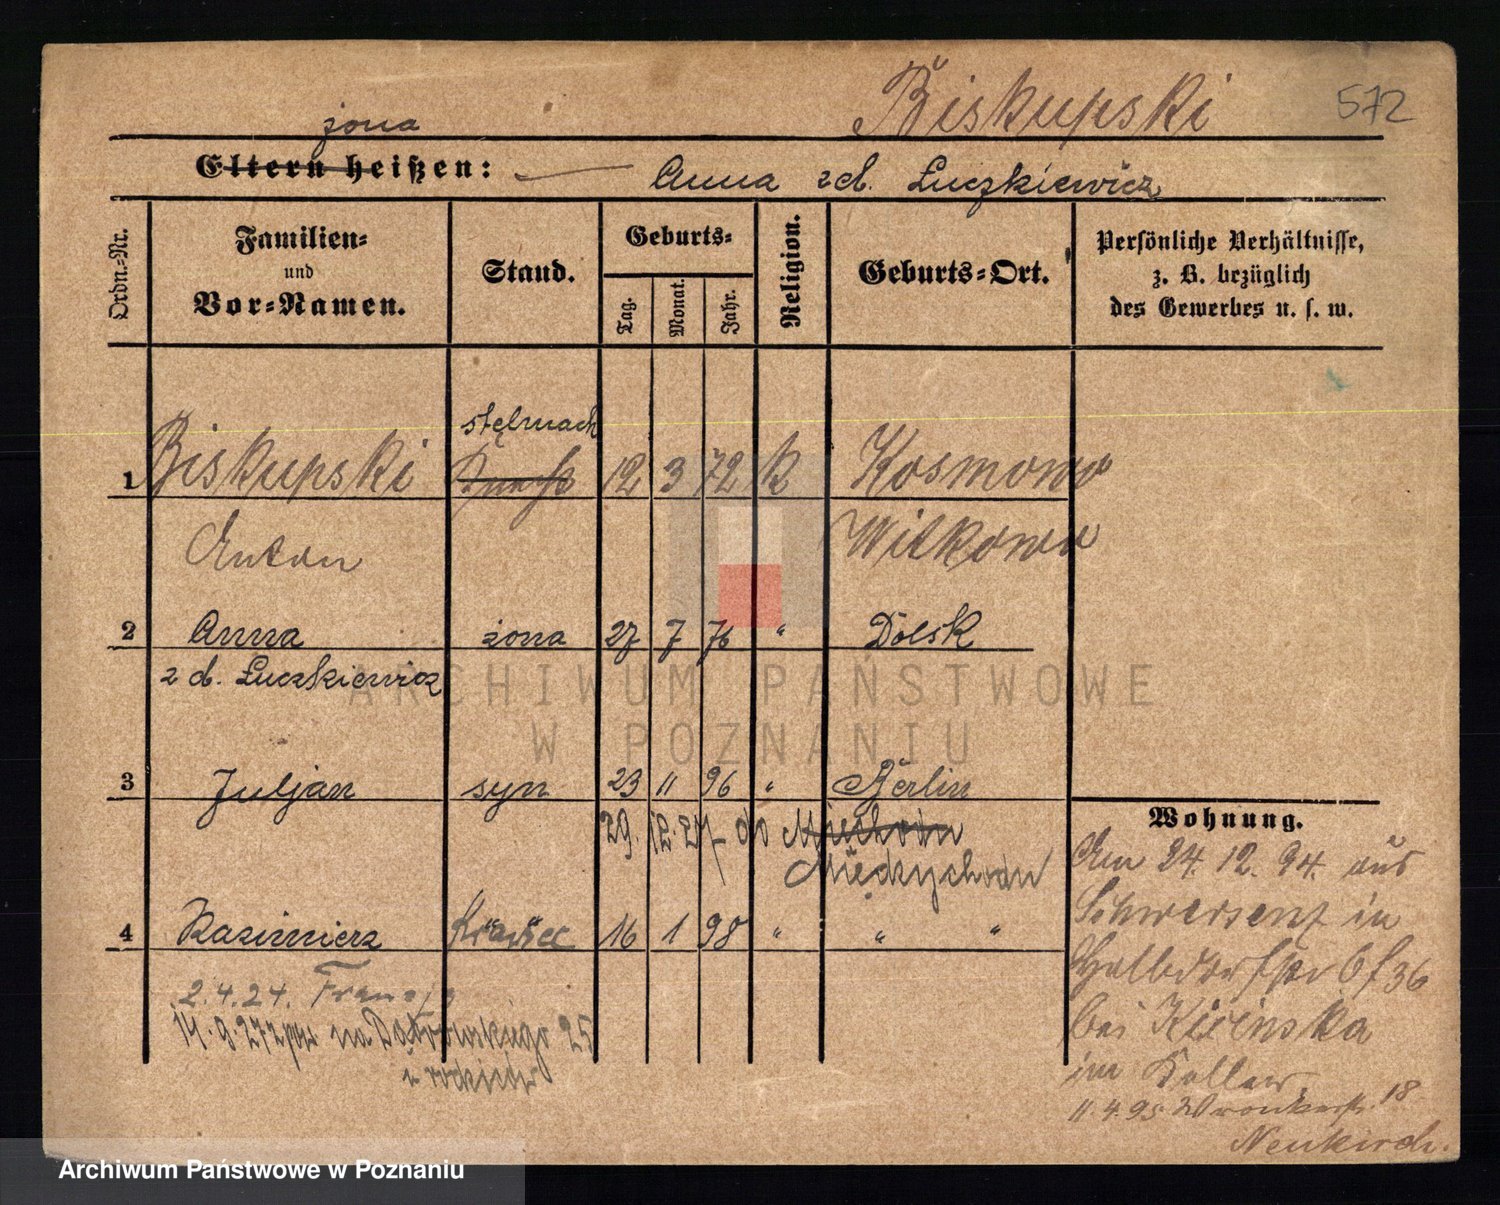 Biskupski 572
żona
Eltern heißen: Anna zd. Luczkiewicz
Ordn.-Nr.
Familien-
und
Vor-Namen.
Stand.
Geburts-
Tag. Monat. Jahr.
Religion.
Geburts-Ort.
Persönliche Verhältnisse,
z. B. bezüglich
des Gewerbes u. s. w.
stelmach
1 Biskupski 12 3 72 k Kosmowo
Anton Witkowo
2 Anna żona 27 7 76 " Dolsk
z d. Luczkiewicz
ARCHIWUM PAŃSTWOWE
W POZNANIU
3 Juljan syn 23 11 96 " Berlin
29. 12. 27 do Miechodu
Międzychodu
Wohnung.
Am 24. 12. 94. aus
Schwersenz in
Halbdorfstr 6 f 36
4 Kazimierz 16 1 98 " " "
bei
2.4.24.
im Keller
14.9.27 na Dąbrowskiego 25
z rodziną
11.4.95 Wronkerstr. 18
Neukirch.
Archiwum Państwowe w Poznaniu